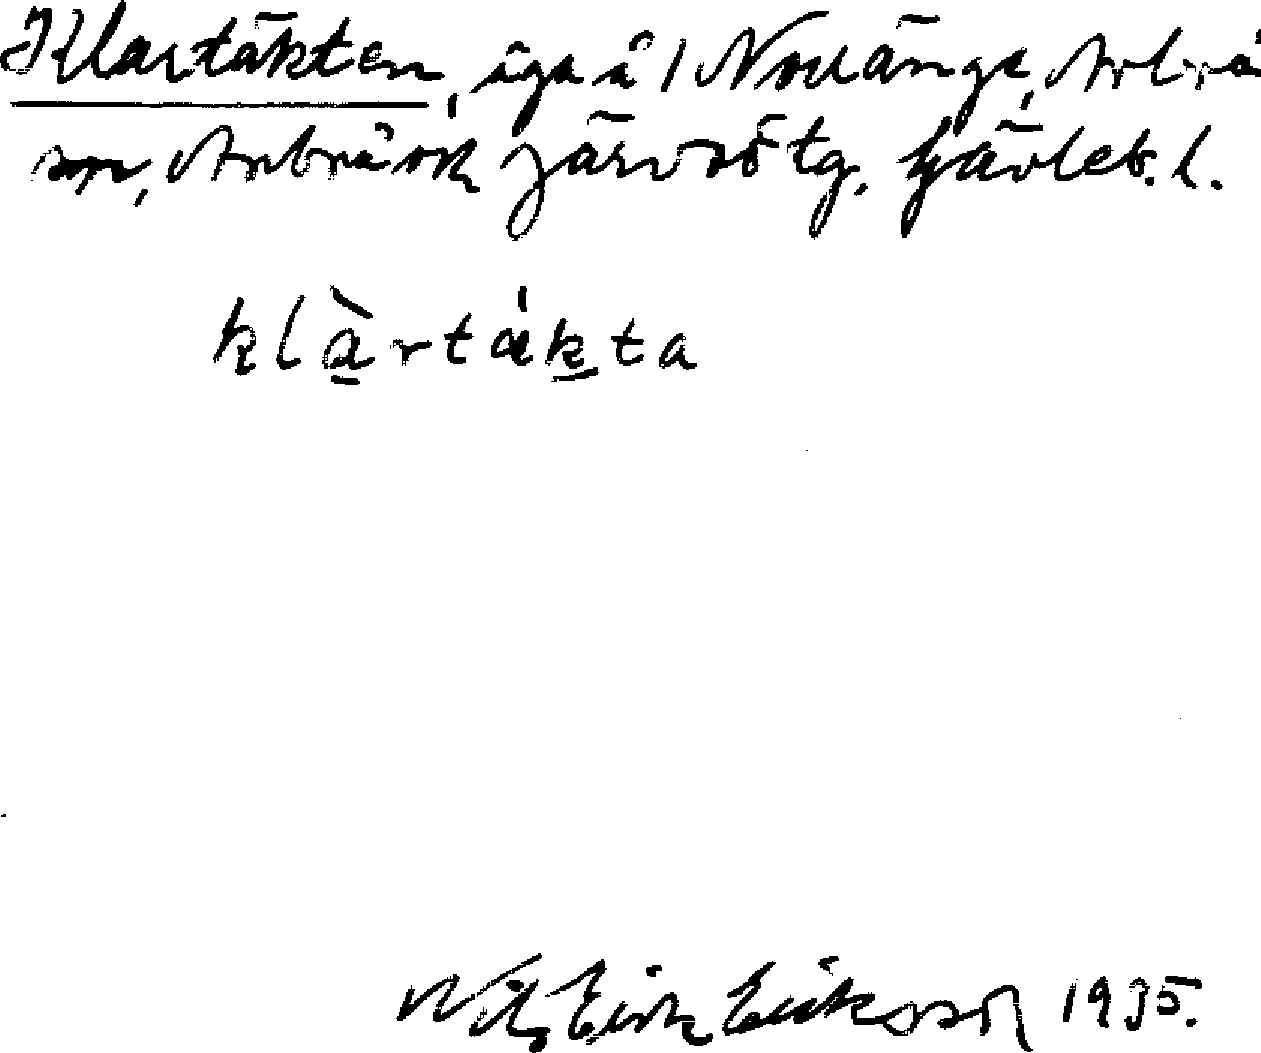 Klartäkten, äga å 1 Norränge, Arbrå
sn, Arbrå ok Järvsö tg. Gävleb. l.
klàrtákta
Nils Erik Eriksson 1935.